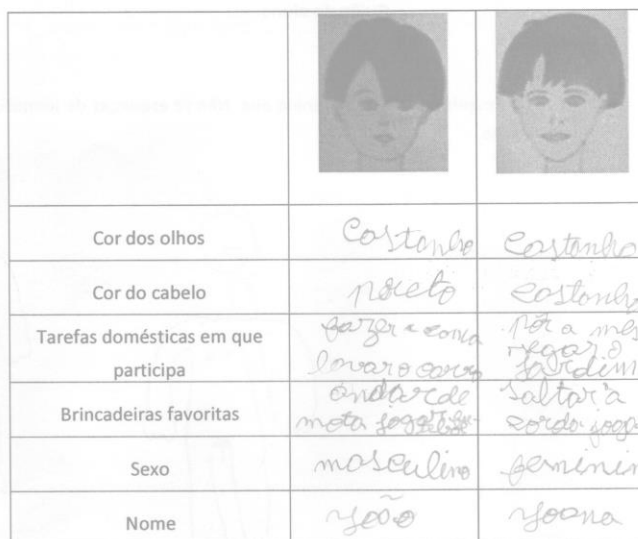 Cor dos olhos Castanho Castanho
Cor do cabelo preto castanho
Tarefas domésticas em que participa fazer a cama lavar o carro pôr a mes regar o jardim
Brincadeiras favoritas andar de mota jogar saltar à corda joga
Sexo masculino feminin
Nome João Joana